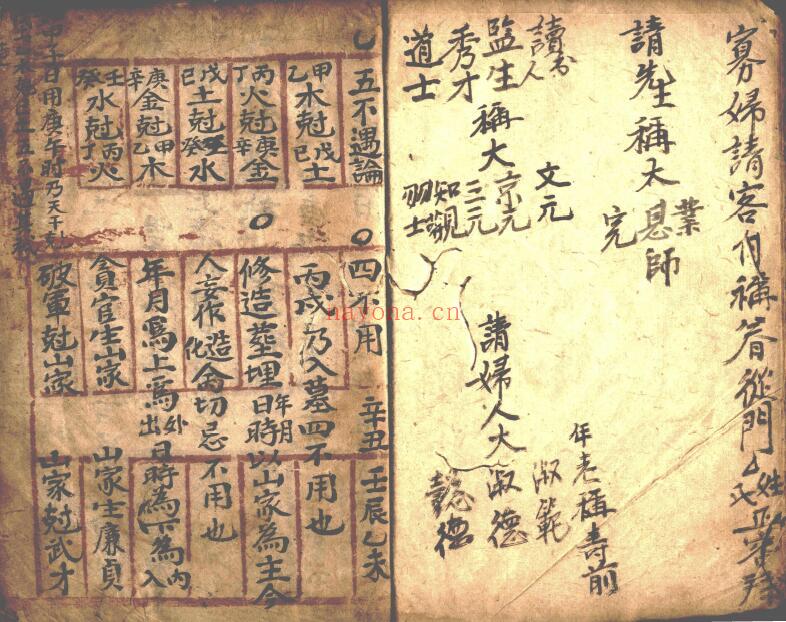 寡婦請客
請先生稱大恩師
業
完
讀書人
監生
秀才
道士
稱大
文元
京元
三元
知觀
羽士
請婦人大淑德
淑範
懿德
年老稱壽前
五不遇論
甲乙木尅戊己土
丙丁火尅庚辛金
戊己土尅壬癸水
庚辛金尅甲乙木
壬癸水尅丙丁火
甲子日用庚午時乃天干尅
四不用 辛丑 壬辰 乙未
丙戌乃入墓四不用也
修造塟埋年月日時以山家為主令
人妄作造化命切忌不用也
年月為上為外出日時為下為內入
貪官生山家 山家生廉貞
破軍尅山家 山家尅武才
nayona.cn